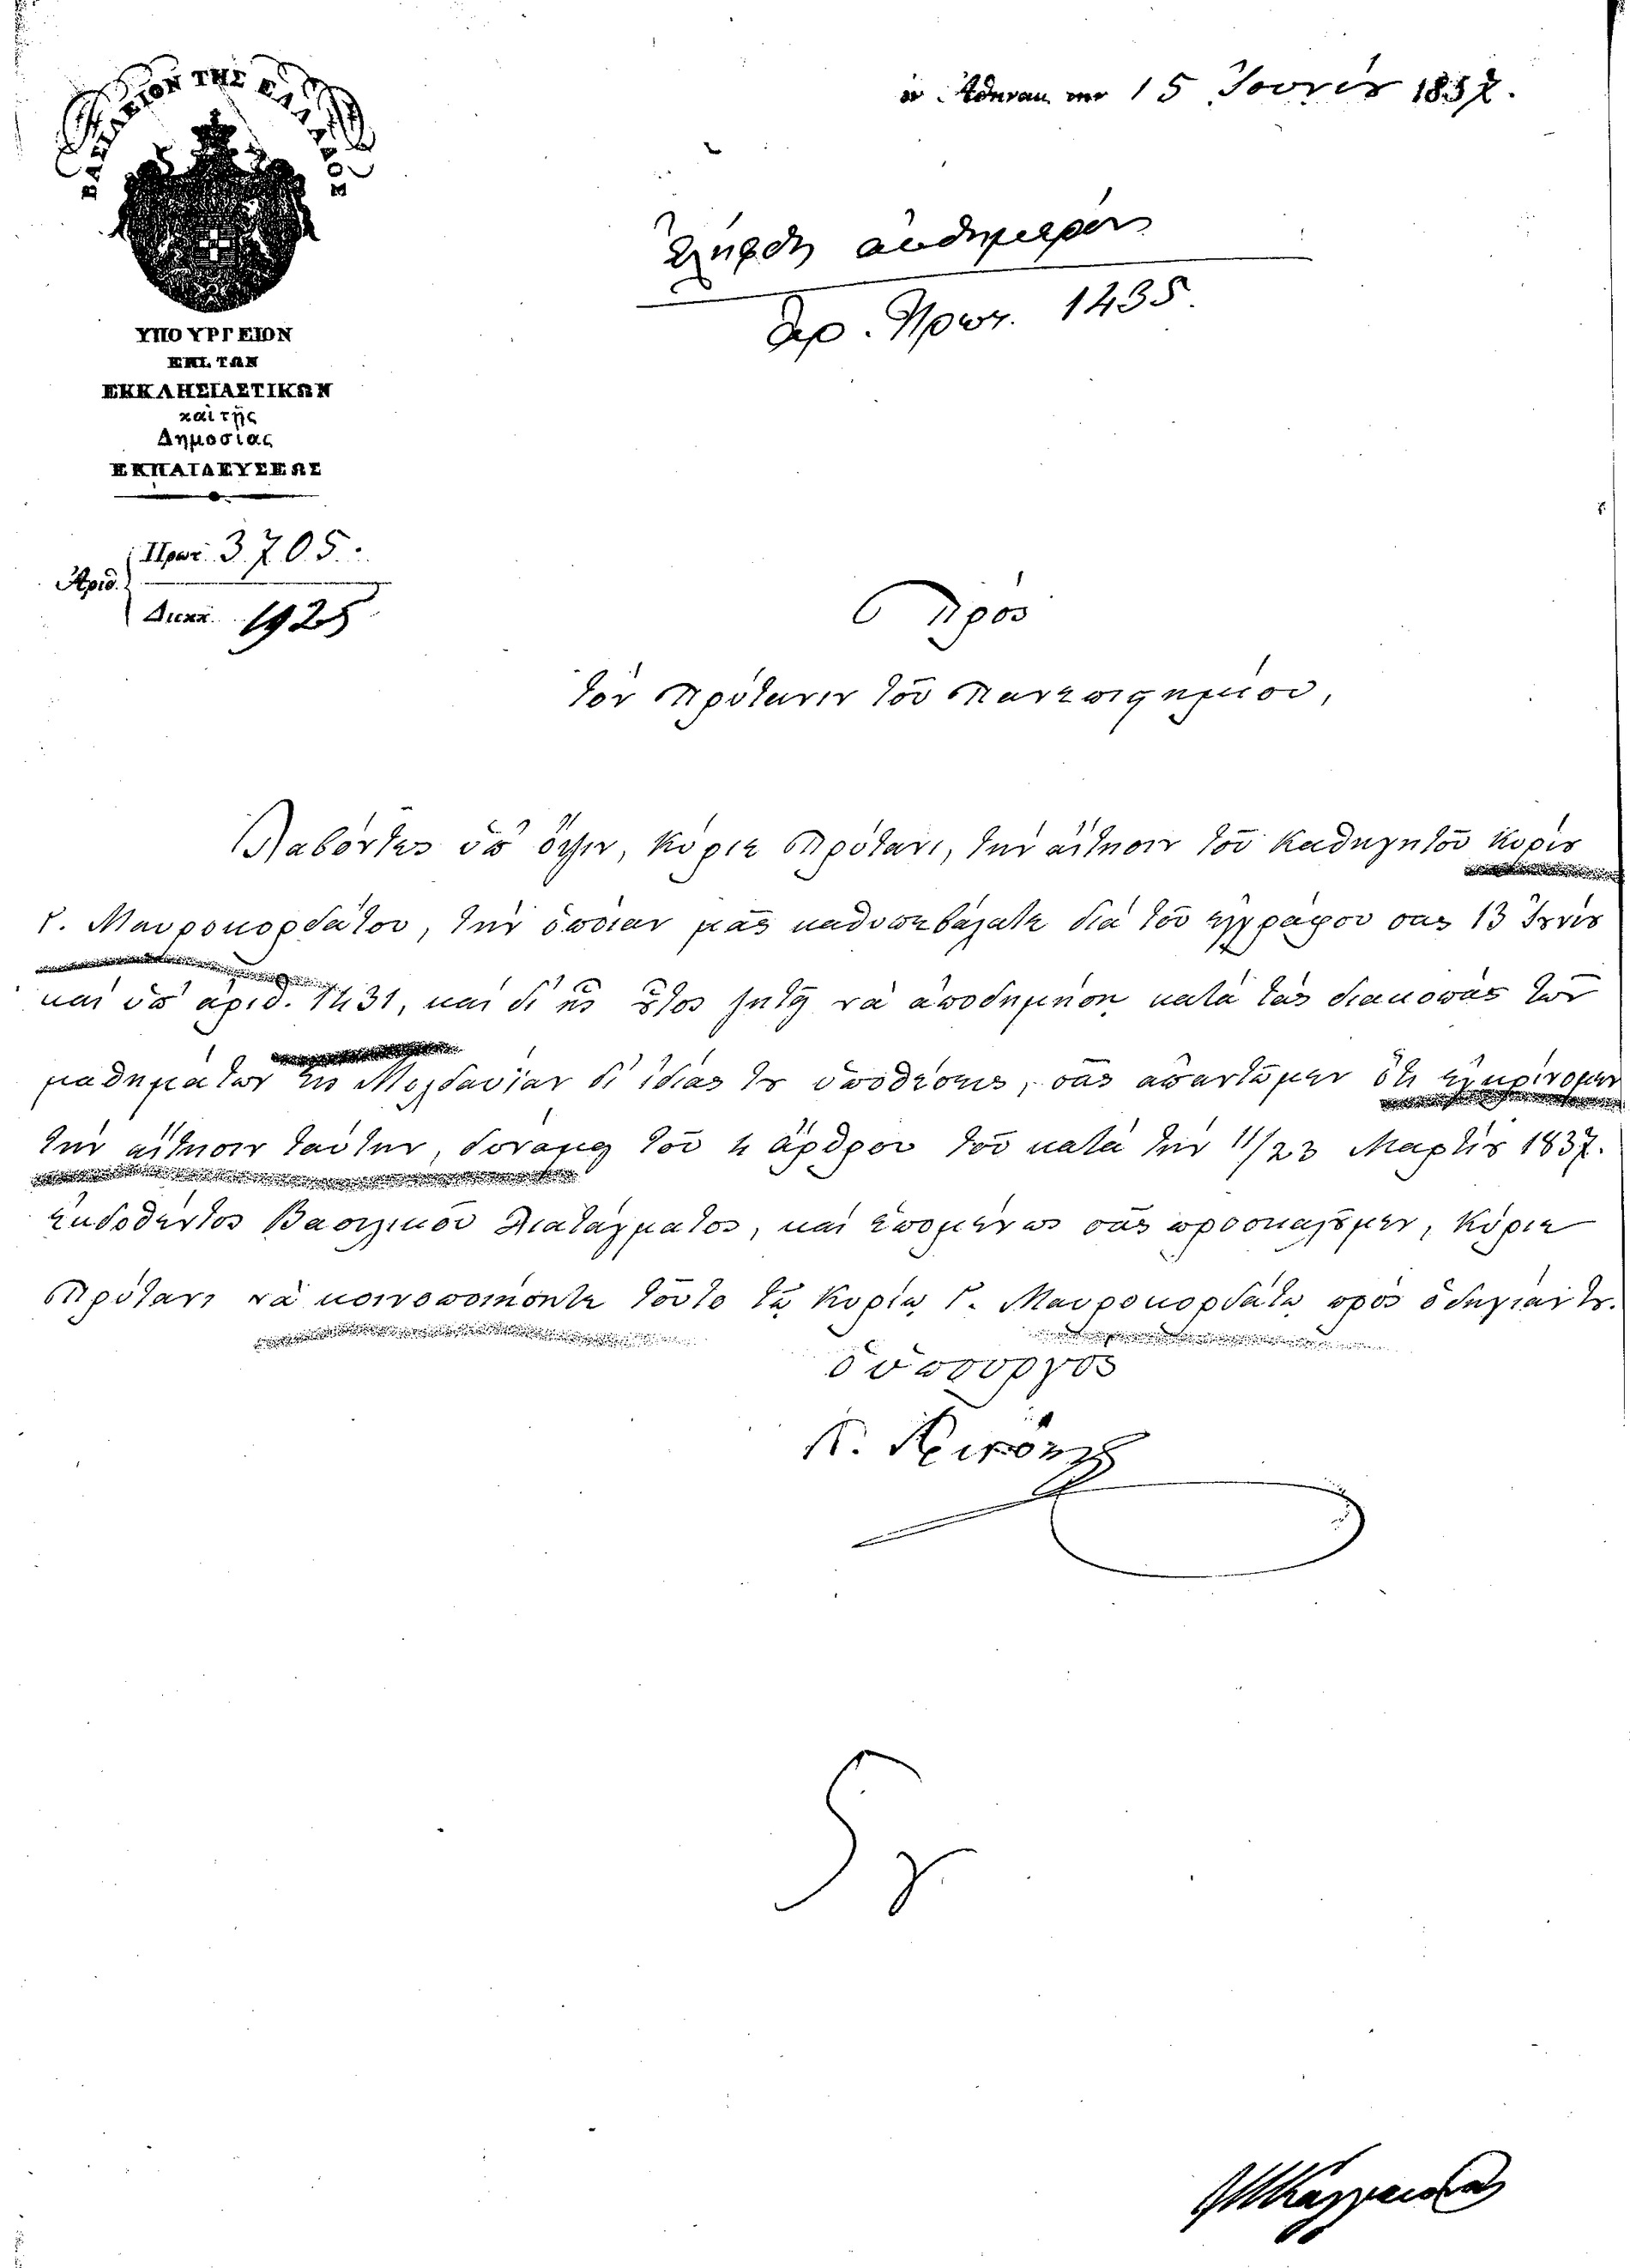 ΒΑΣΙΛΕΙΟΝ ΤΗΣ ΕΛΛΑΔΟΣ
ΥΠΟΥΡΓΕΙΟΝ
ΕΠΙ ΤΩΝ
ΕΚΚΛΗΣΙΑΣΤΙΚΩΝ
καὶ τῆς
Δημοσίας
ΕΚΠΑΙΔΕΥΣΕΩΣ
Ἀριθ.
Πρωτ. 3705.
Διεκπ. 1925
ἐν Ἀθήναις τὴν 15 Ἰουνίȣ 1857.
Ἐλήφθη αὐθημερόν
Ἀρ. Πρωτ. 1435.
Πρὸς
τὸν Πρύτανιν τοῦ Πανεπιστημίου,
Λαβόντες ὑπ' ὄψιν, Κύριε Πρύτανι, τὴν αἴτησιν τοῦ Καθηγητοῦ Κυρίȣ
Γ. Μαυροκορδάτου, τὴν ὁποίαν μᾶς καθυπεβάλατε διὰ τοῦ ἐγγράφου σας 13 Ἰȣνίȣ
καὶ ὑπ' ἀριθ. 1431, καὶ δι' ἧς ȣ̓͂τος ζητῇ νὰ ἀποδημήσῃ κατὰ τὰς διακοπὰς τῶν
μαθημάτων εἰς Μολδαυΐαν δι' ἰδίας τȣ ὑποθέσεις, σᾶς ἀπαντῶμεν ὅτι ἐγκρίνομεν
τὴν αἴτησιν ταύτην, δυνάμει τοῦ 4 ἄρθρου τοῦ κατὰ τὴν 11/23 Μαρτίȣ 1837.
ἐκδοθέντος Βασιλικοῦ Διατάγματος, καὶ ἑπομένως σᾶς προσκαλȣ͂μεν, Κύριε
Πρύτανι νὰ κοινοποιήσητε τοῦτο τῷ Κυρίῳ Γ. Μαυροκορδάτῳ πρὸς ὁδηγίαν τȣ.
ὁ ὑπουργὸς